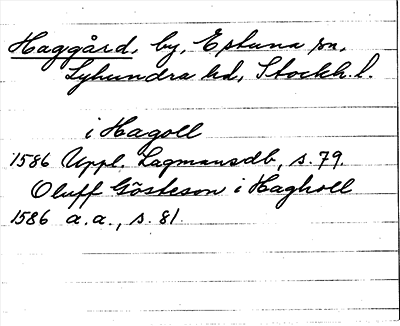 Haggård, by, Estuna sn,
Lyhundra hd, Stockh. l.
i Hagoll
1586 Uppl. Lagmansdb, s. 79
Oluff Gösteson i Haghell
1586 a.a., s. 81